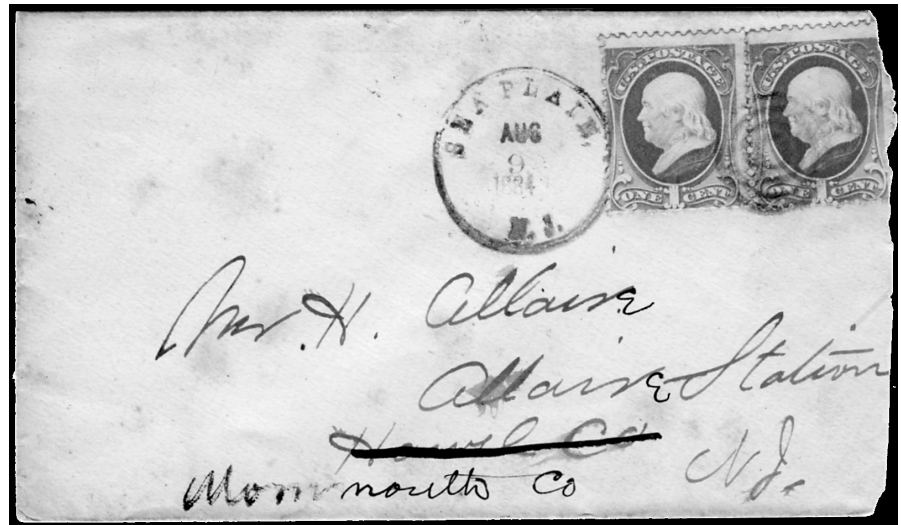 SEA PLAIN,
AUG
9
1884
N. J.
U.S. POSTAGE
ONE CENT
U.S. POSTAGE
ONE CENT
Mr. H. Allaire
Allaire Station
Howel Co
N.J.
Monmouth Co